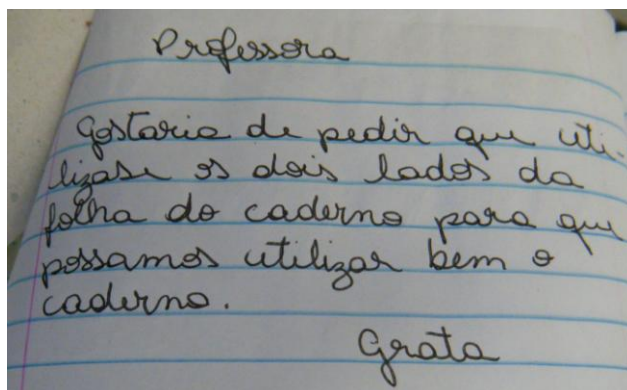 Professora
Gostaria de pedir que uti-
lizase os dois lados da
folha do caderno para que
possamos utilizar bem o
caderno.
Grata